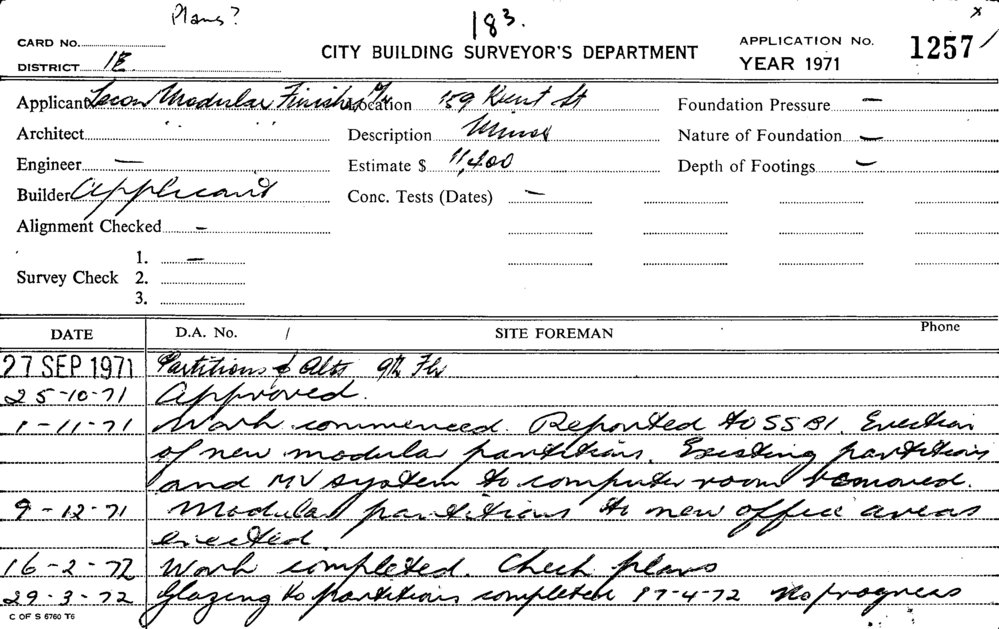 Plans?
183.
x
CARD No.
CITY BUILDING SURVEYOR'S DEPARTMENT
APPLICATION No. 1257
DISTRICT 1E
YEAR 1971
Applicant Modular Finishes Location 159 Kent St
Foundation Pressure —
Architect " "
Description Minor
Nature of Foundation —
Engineer —
Estimate $ 11,400
Depth of Footings —
Builder Applicant
Conc. Tests (Dates) —
Alignment Checked —
Survey Check 1. —
2.
3.
DATE D.A. No. / SITE FOREMAN Phone
27 SEP 1971 Partitions & Alts 9th Flr
25-10-71 Approved.
1-11-71 Work commenced. Reported to SSBI. Erection
of new modular partitions. Existing partitions
and MV system to computer room removed.
9-12-71 Modular partitions to new office areas
erected.
16-2-72 Work completed. Check plans
29-3-72 Glazing to partitions completed 17-4-72 No progress
C OF S 6760 T6